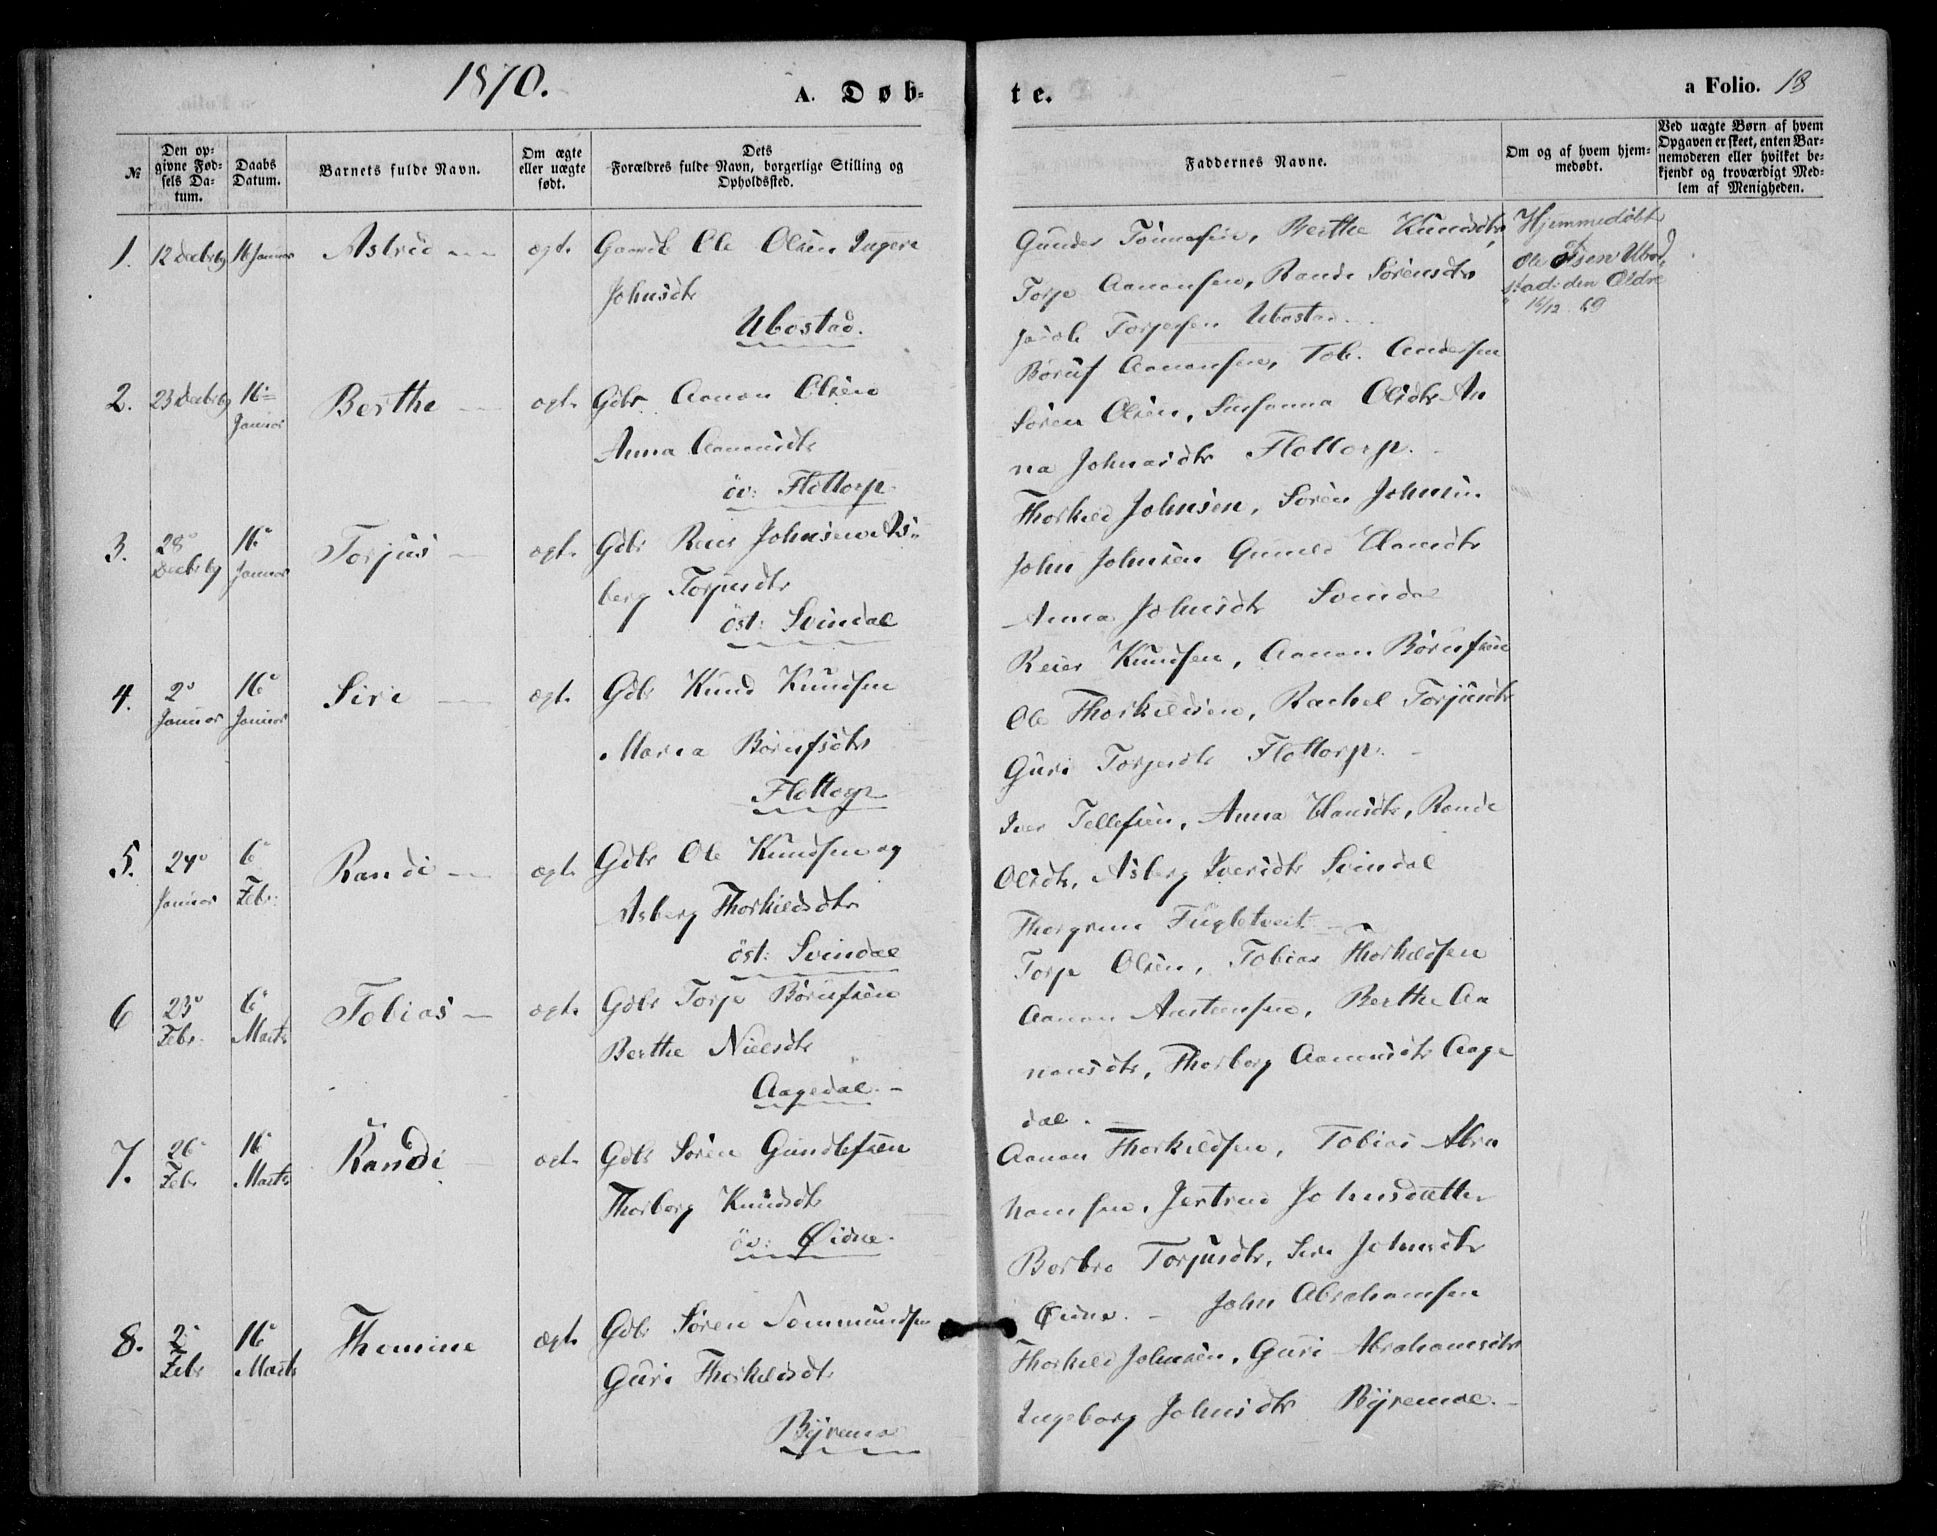 1870.
A. Døb-
te.
a Folio. 18
№
Den op-
givne Fød-
sels Da-
tum.
Daabs
Datum.
Barnets fulde Navn.
Om ægte
eller uægte
født.
Dets
Forældres fulde Navn, borgerlige Stilling og
Opholdssted.
Faddernes Navne.
Om og af hvem hjem-
medøbt.
Ved uægte Børn af hvem
Opgaven er skeet, enten Bar-
nemoderen eller hvilket be-
kjendt og troværdigt Med-
lem af Menigheden.
1.
12 Decbr 69
16 Januar
Astrid
ægt.
Ole Olsen Ingere
Johnsdtr
Ubostad.
Gunder Tønnesen, Berthe Knudsdtr,
Torje Aanonsen, Rande Sørensdtr
Jacob Torjesen Ubostad.
Hjemmedøbt
Ole Olsen Ubo-
stad: den Ældre
16/12 69
2.
23 Decbr 69
16
Januar
Berthe
ægt.
Gdbr Aanon Olsen
Anna Aanonsdtr
öv: Flottorp
Børuf Aanonsen, Tob. Andersen
Søren Olsen, Susanna Olsdtr An
na Johnasdtr Flottorp.
3.
28
Decbr 69
16
Januar
Torjus
ægt.
Gdbr Reier Johnsen As-
berg Torjusdtr
öst: Svindal
Thorkild Johnsen, Søren Johnsen
John Johnsen Gunild Hansdtr
Anna Johnsdtr Svindal
4.
2
Januar
16
Januar
Siri
ægt.
Gdbr Knud Knudsen
Maria Børufsdtr
Flottorp
Reier Knudsen, Aanon Børufsen
Ole Thorkildsen, Rachel Torjusdtr
Guri Torjesdtr Flottorp.
5.
24
Januar
6
Febr:
Randi
ægt.
Gdbr Ole Knudsen og
Asberg Thorkildsdtr
öst: Svindal
Iver Tellefsen, Anna Hansdtr, Rande
Olsdtr, Asberg Iversdtr Svindal
Thorgrim Fugletveit
6
23
Febr.
6
Marts
Tobias
ægt.
Gdbr Torje Børufsen
Berthe Nielsdtr
Aagedal.
Torje Olsen, Tobias Thorkildsen
Aanon Austensen, Berthe Aa
nonsdtr, Thorborg Aanonsdtr Aage
dal.
7.
26
Febr
16
Marts
Randi
ægt.
Gdbr Søren Gundlefsen
Thorborg Knudsdtr
öv: Øidne.
Aanon Thorkildsen, Tobias Abra
hamsen, Jertrud Johnsdatter
Barbro Torjusdtr, Siri Johnsdtr
Øidne.
8.
2
Febr
16
Marts
Thomine
ægt.
Gdbr Søren Tommundsen
Guri Thorkildsdtr
Byremo
John Abrahamsen
Thorkild Johnsen, Guri Abrahamsdtr
Ingeborg Johnsdtr Byremoe.